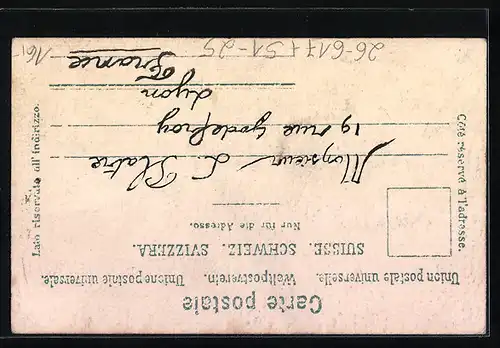 Carte postale
Union postale universelle. Weltpostverein. Unione postale universale.
SUISSE. SCHWEIZ. SVIZZERA.
Nur für die Adresse.
Côté réservé à l'adresse.
Lato riservato all' indirizzo.
Monsieur L. Platre
19 rue Godefroy
Lyon
France
26-617+51-25
161